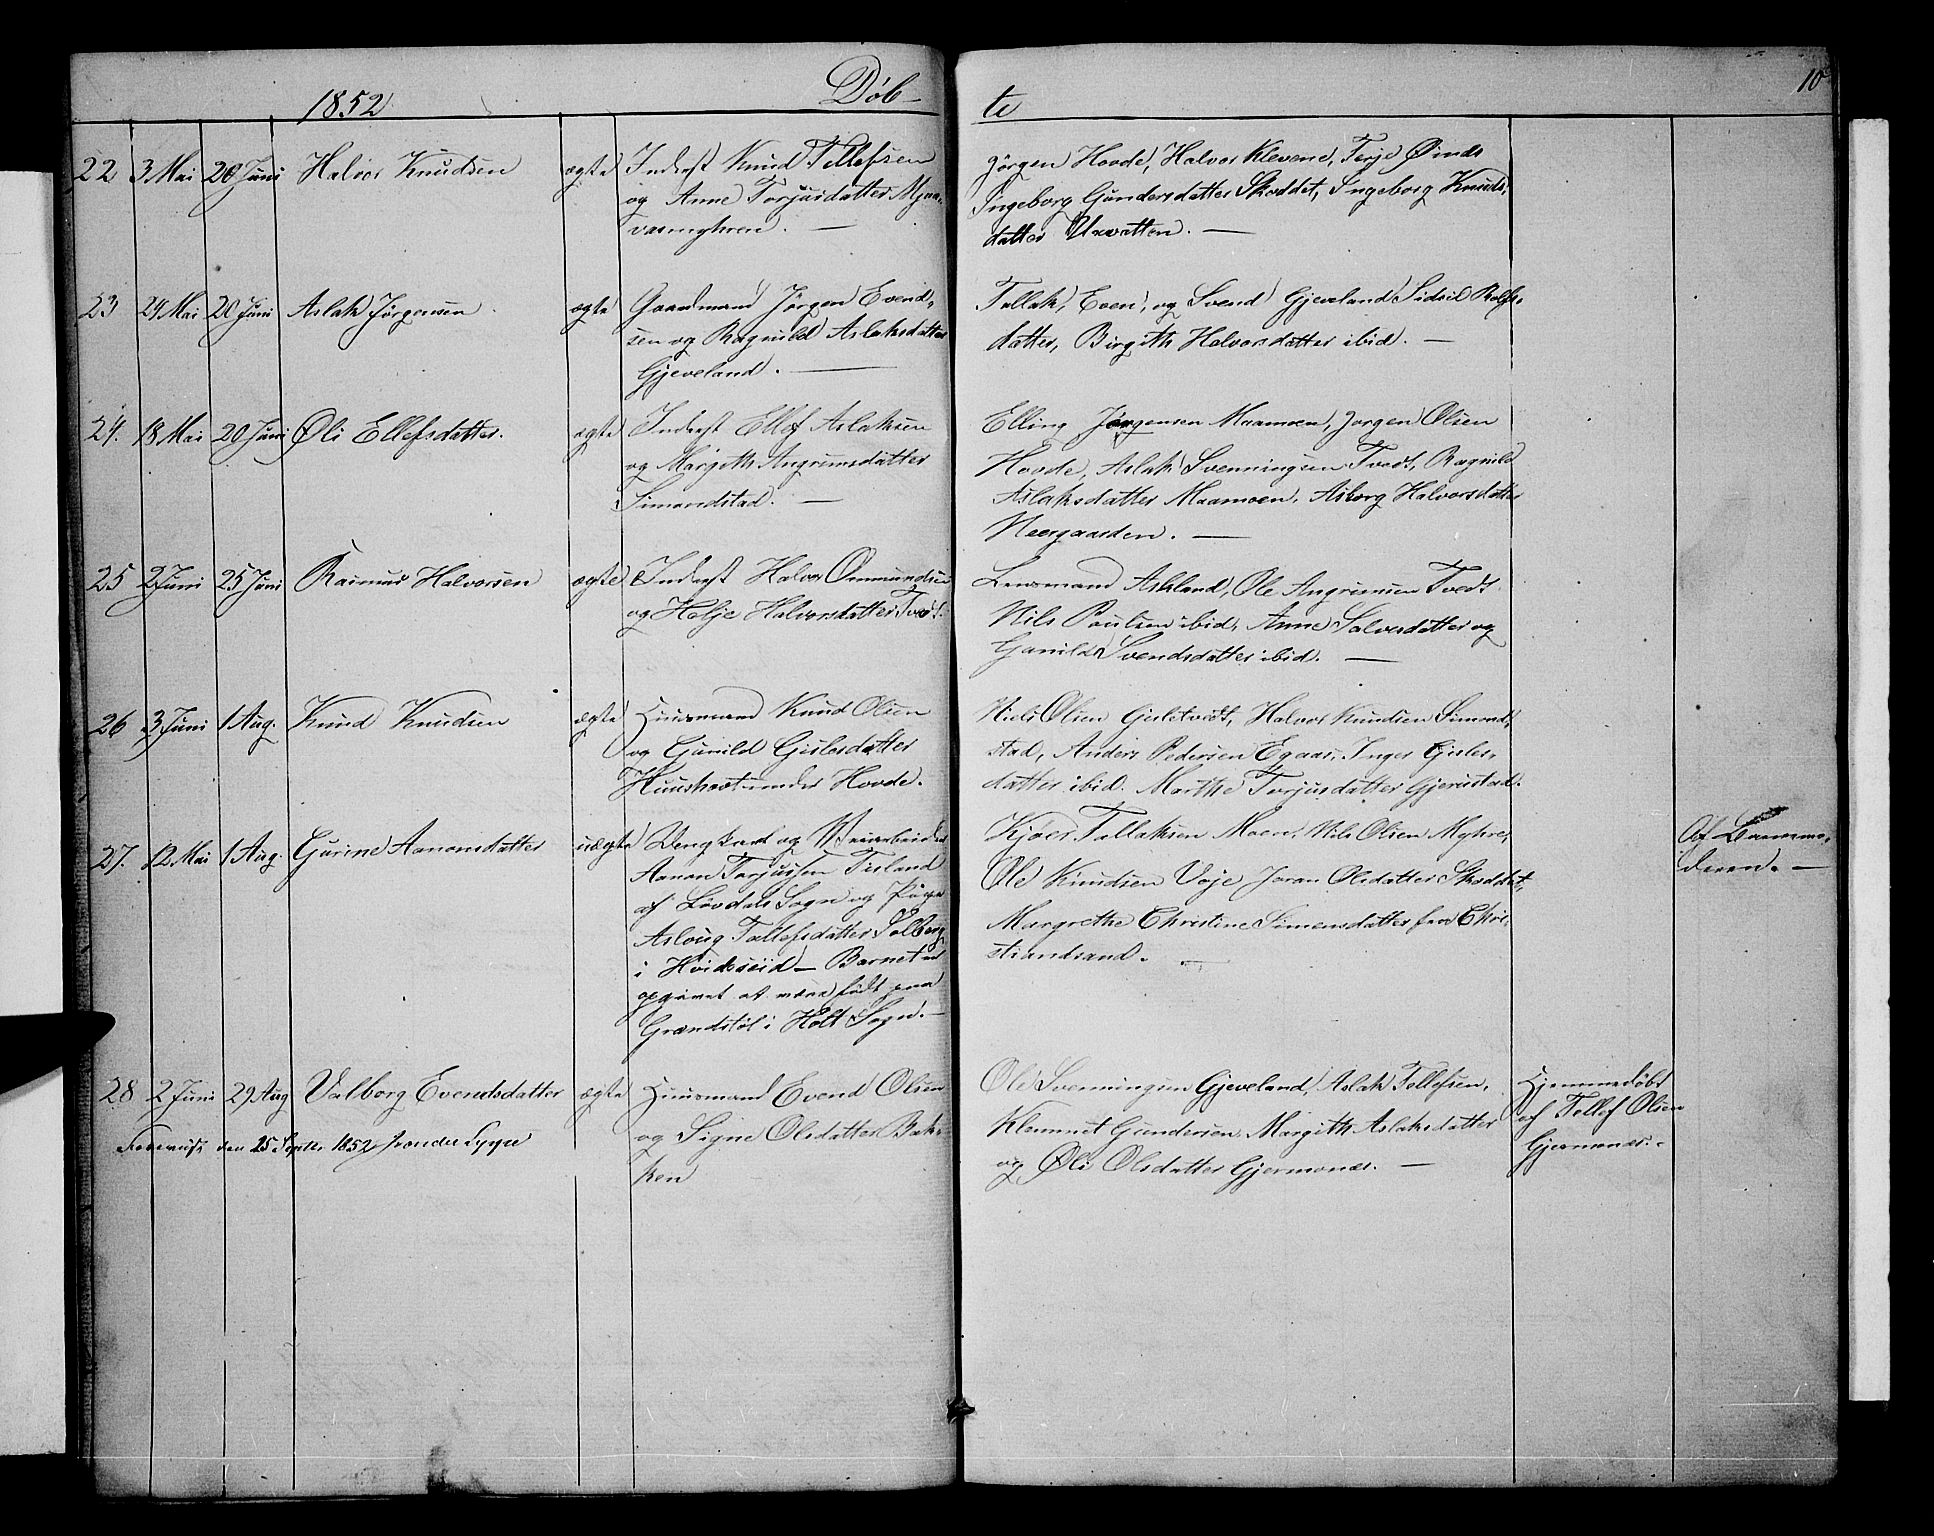 1852
Døb-
te
10
22 3 Mai 20 Juni Halvor Knudsen ægte Inderst Knud Tellefsen
og Anne Torjusdatter Mjaa-
vasmyhren. —
Jørgen Hovde, Halvor Klevene, Terje Øinds
Ingeborg Gundersdatter Skoddet, Ingeborg Knuds-
datter Urvatten. —
23 24 Mai 20 Juni Aslak Jørgensen ægte Gaardmand Jørgen Evend-
sen og Ragnild Aslaksdatter
Gjeveland. —
Tallak, Even, og Svend Gjeveland Sidsil Rolfs-
datter, Birgith Halvorsdatter ibid. —
24. 18 Mai 20 Juni Øli Ellefsdatter. ægte Inderst Ellef Aslaksen
og Margith Angrimsdatter
Simondstad. —
Elling Jørgensen Maamoen, Jørgen Olsen
Hovde, Aslak Svenningsen Tvedt, Ragnild
Aslaksdatter Maamoen, Asborg Halvorsdatter
Neergaarden. —
25 2 Juni 25 Juni Rasmus Halvorsen ægte Inderst Halvor Ommundsen
og Helje Halvorsdatter Tvedt.
Lensmand Askland, Ole Angrimsen Tvedt
Nils Poulsen ibid, Anne Salvesdatter og
Gunild Svendsdatter ibid. —
26 3 Juni 1 Aug. Knud Knudsen ægte Huusmand Knud Olsen
og Gunild Gislesdatter
Huuskaas under Hovde.
Niels Olsen Gjeletvedt, Halvor Knudsen Simond-
stad, Anders Pedersen Egaas, Inger Gisles-
datter ibid. Marthe Torjusdatter Gjerustad.
27. 12 Mai 1 Aug. Gurine Aanonsdatter uægte Ungkarl og Veiarbeider
Aanon Torjussen Tisland
af Løvdals Sogn og Pige
Asloug Tollefsdatter Solberg
i Hvideseid — Barnet er
opgivet at være født paa
Grændstøl i Holt Sogn. —
Kjøer Tallaksen Moen, Nils Olsen Myhre,
Ole Knudsen Voje Joran Olsdatter Skoddet,
Margrethe Christine Simensdatter fra Chri-
stiandsand. —
Af Barnmo-
deren. —
28 2 Juni 29 Aug Valborg Evendsdatter ægte Huusmand Evend Olsen
og Signe Olsdatter Bak-
ken
Fremvist den 25 Septr 1852 for under Sygse
Ole Svenningsen Gjeveland, Aslak Tellefsen,
Klemmet Gundersen, Margith Aslaksdatter
og Øli Olsdatter Gjermonæs. —
Hjemmedøbt
af Tellef Olsen
Gjermonæs. —